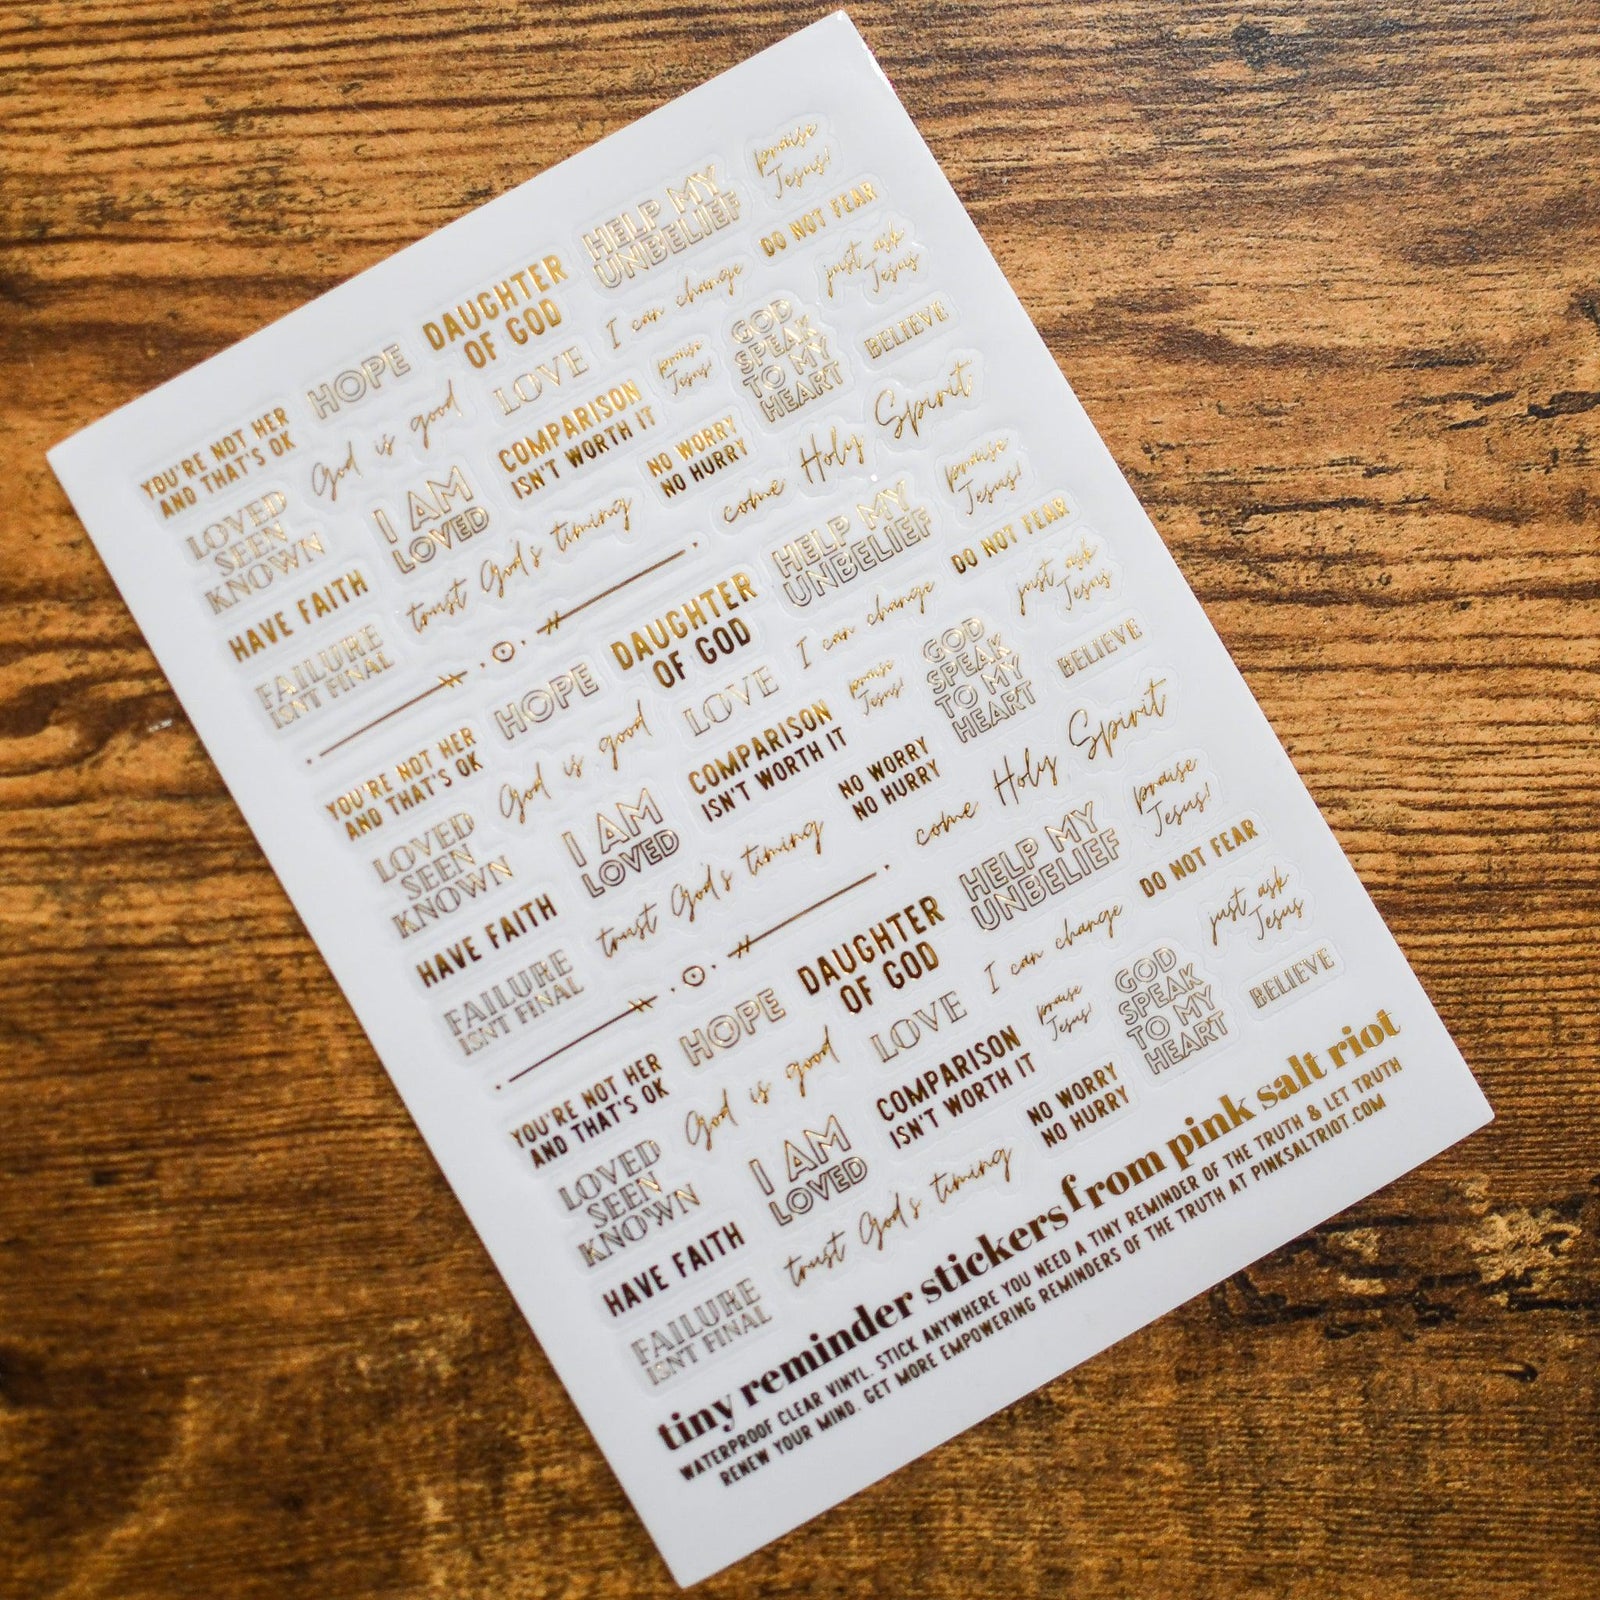 praise
Jesus!
HELP MY
UNBELIEF
DO NOT FEAR
DAUGHTER
OF GOD
I can change
just ask
Jesus
HOPE
LOVE
praise
Jesus!
GOD
SPEAK
TO MY
HEART
BELIEVE
YOU'RE NOT HER
AND THAT'S OK
God is good
COMPARISON
ISN'T WORTH IT
NO WORRY
NO HURRY
come Holy Spirit
LOVED
SEEN
KNOWN
I AM
LOVED
trust God's timing
HAVE FAITH
FAILURE
ISNT FINAL
praise
Jesus!
HELP MY
UNBELIEF
DO NOT FEAR
DAUGHTER
OF GOD
I can change
just ask
Jesus
HOPE
LOVE
praise
Jesus!
GOD
SPEAK
TO MY
HEART
BELIEVE
YOU'RE NOT HER
AND THAT'S OK
God is good
COMPARISON
ISN'T WORTH IT
NO WORRY
NO HURRY
come Holy Spirit
LOVED
SEEN
KNOWN
I AM
LOVED
trust God's timing
HAVE FAITH
FAILURE
ISNT FINAL
praise
Jesus!
HELP MY
UNBELIEF
DO NOT FEAR
DAUGHTER
OF GOD
I can change
just ask
Jesus
HOPE
LOVE
praise
Jesus!
GOD
SPEAK
TO MY
HEART
BELIEVE
YOU'RE NOT HER
AND THAT'S OK
God is good
COMPARISON
ISN'T WORTH IT
NO WORRY
NO HURRY
LOVED
SEEN
KNOWN
I AM
LOVED
trust God's timing
HAVE FAITH
FAILURE
ISNT FINAL
tiny reminder stickers from pink salt riot
WATERPROOF CLEAR VINYL. STICK ANYWHERE YOU NEED A TINY REMINDER OF THE TRUTH & LET TRUTH
RENEW YOUR MIND. GET MORE EMPOWERING REMINDERS OF THE TRUTH AT PINKSALTRIOT.COM